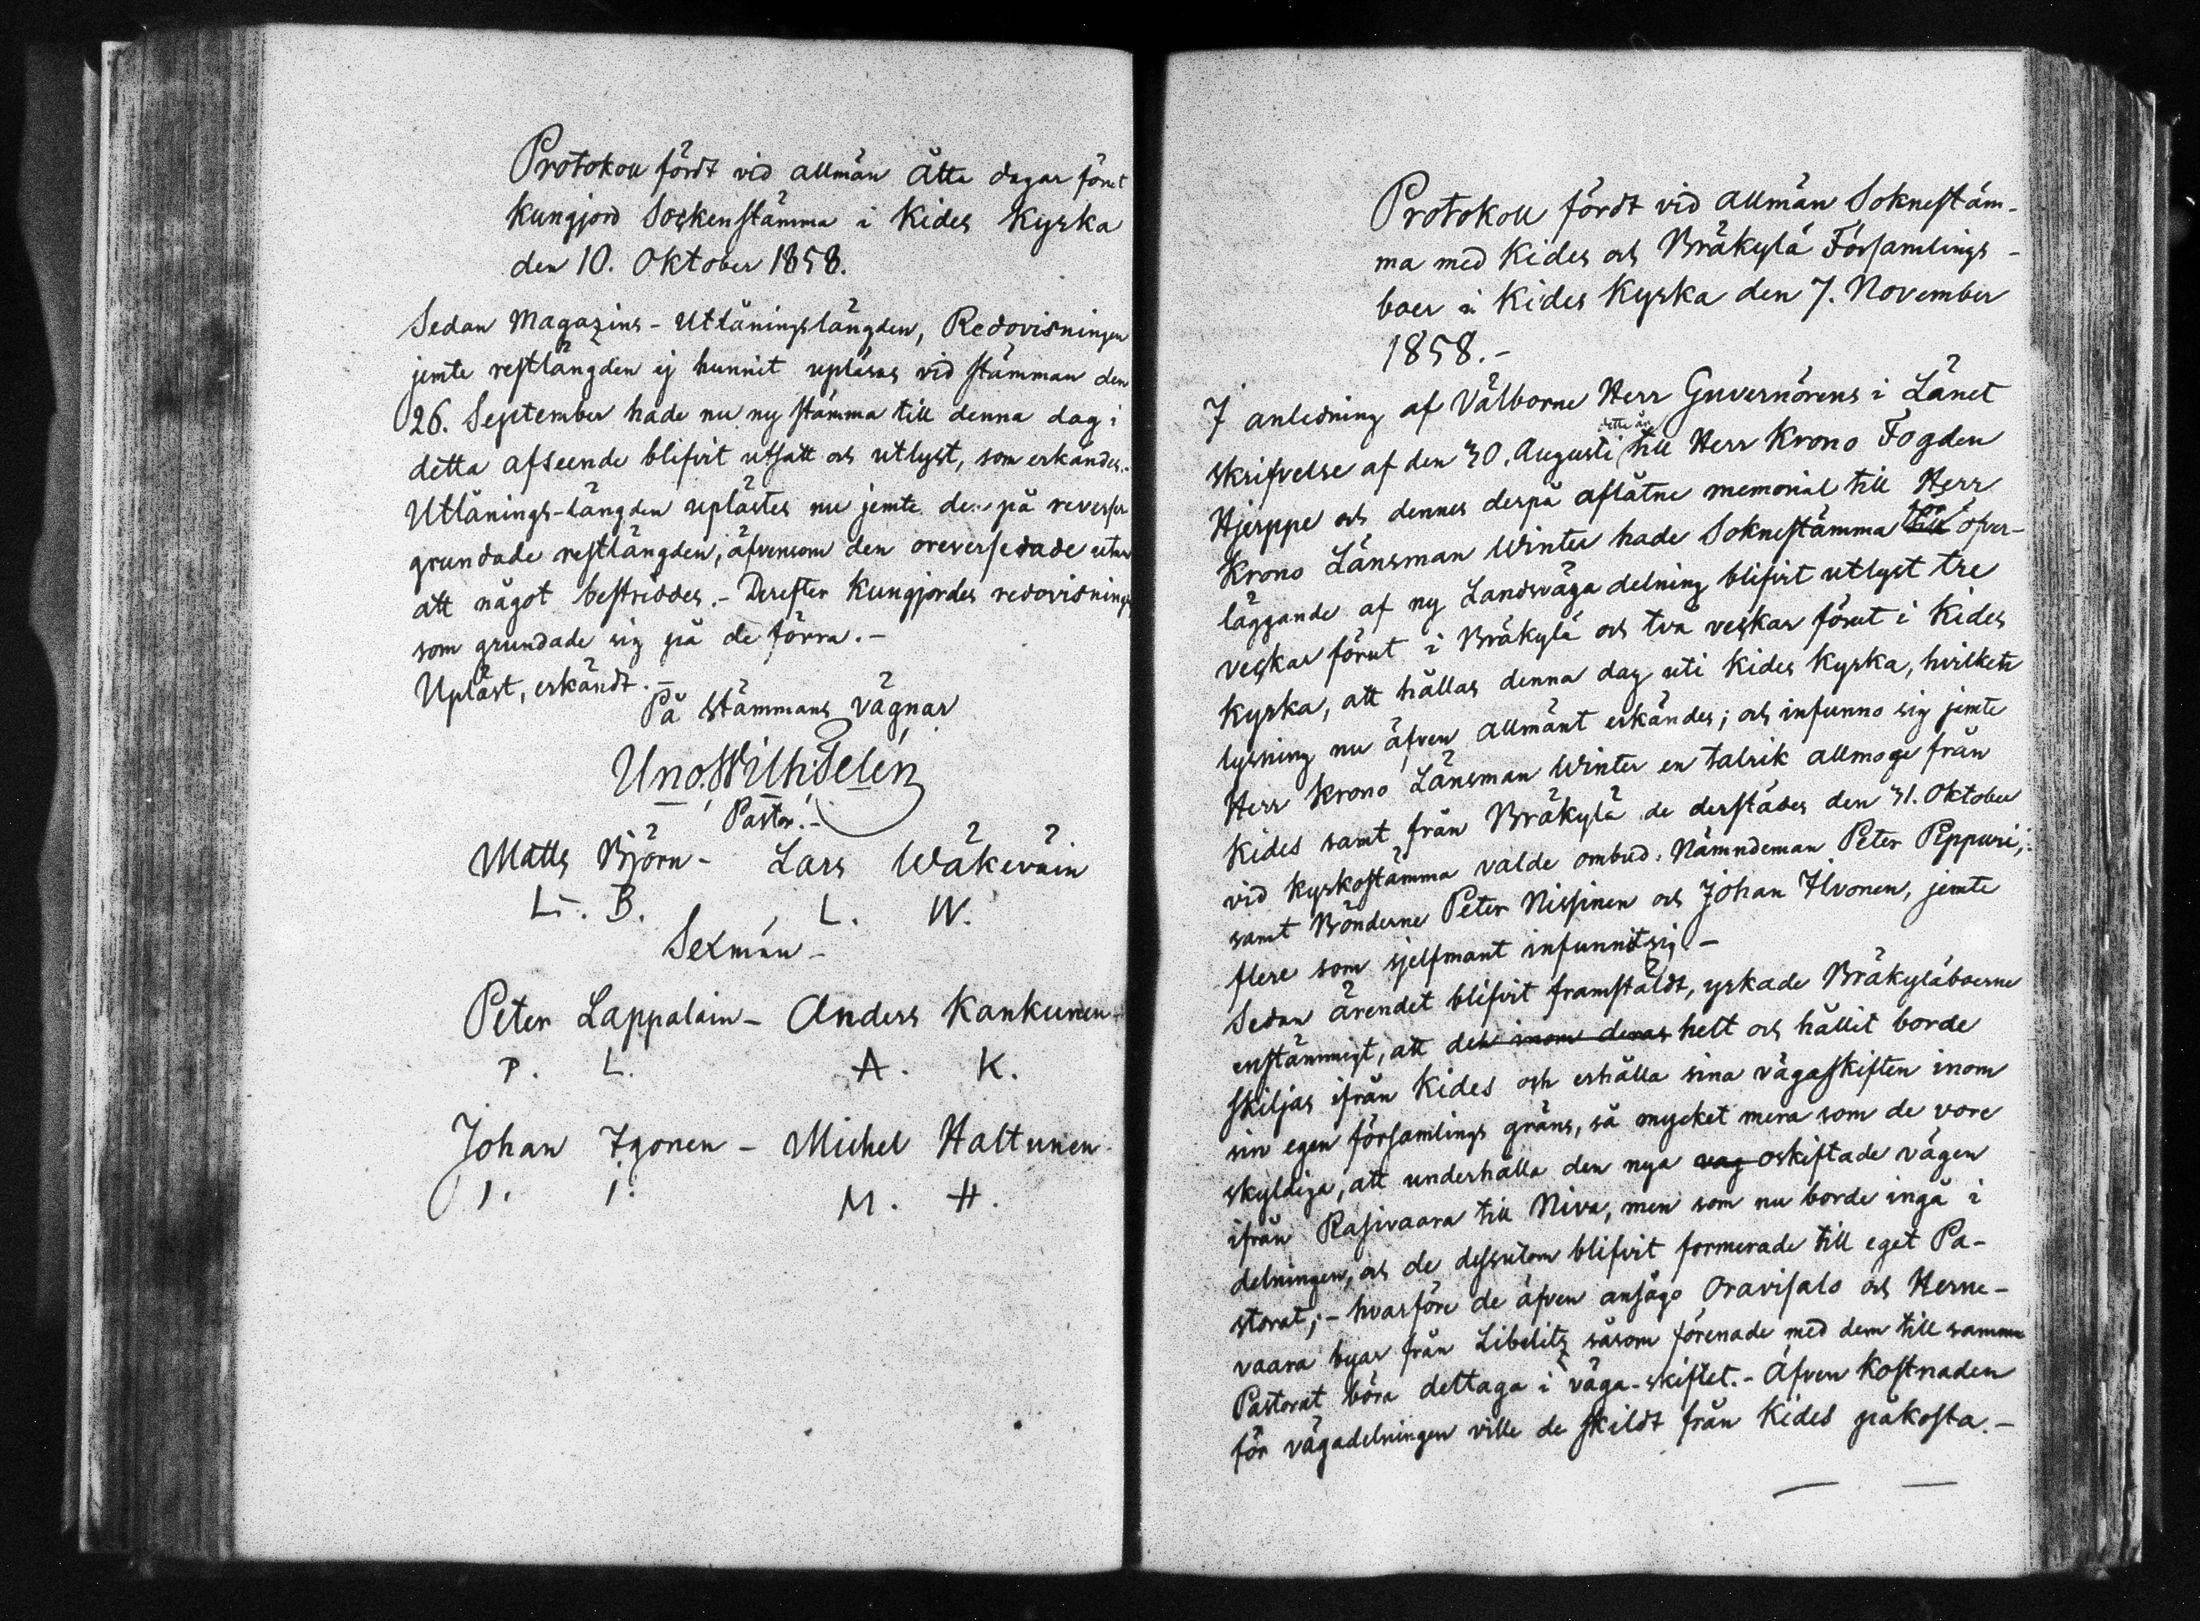 Protokoll fördt vid allmän åtta dagar förut
Kungjord Sockenstämma i Kides Kyrka
den 10. Oktober 1858.
Sedan Magazins-Utlåningslängden, Redovisningen
jemte restlängden ej hunnit upläsas vid stämman den
26. September hade nu ny stämma till denna dag i
detta afseende blifvit utsatt och utlyst, som erkändes.
Utlånings-längden uplästes nu jemte den på reverser
grundade restlängden, äfvensom den oreverserade utan
att något bestriddes. - Derefter Kungjordes redovisningen
som grundade sig på de förra. -
Upläst, erkändt. -
På Stämmans vägnar
Uno Wilh: Telén
Pastor. -
Matts Björn - Lars Wäkeväin
L. B. L. W.
Sexmän -
Peter Lappalain - Anders Kankunen -
P. L. A. K.
Johan Igonen - Michel Haltunen
I. I. M. H.
Protokoll fördt vid allmän Soknestäm-
ma med Kides och Bräkylä Församlings-
boer i Kides Kyrka den 7. November
1858. -
I anledning af Välborne Herr Guvernörens i Länet
skrifvelse af den 30. Augusti detta år till Herr Krono Fogden
Hjerppe och dennes derpå aflåtne memorial till Herr
Krono Länsman Winter hade Soknestämma till för öfver-
läggande af ny Landsväga delning blifvit utlyst tre
veckor förut i Bräkylä och två veckor förut i Kides
Kyrka, att hållas denna dag uti Kides Kyrka, hvilken
lysning nu äfven allmänt erkändes; och infunno sig jemte
Herr Krono Länsman Winter en talrik allmoge från
Kides samt från Bräkylä de derstädes den 31. Oktober
vid Kyrkostämma valde ombud: Nämndeman Peter Peppuri,
samt Bönderne Peter Nissinen och Johan Ilvonen, jemte
flere som sjelfmant infunnit sig. -
Sedan ärendet blifvit framstäldt, yrkade Bräkyläboerne
enstämmigt, att de inom deras helt och hållit borde
skiljas ifrån Kides och erhålla sina vägaskiften inom
sin egen församlings gräns, så mycket mera som de vore
skyldiga, att underhålla den nya väg oskiftade vägen
ifrån Rasivaara till Niva, men som nu borde ingå i
delningen, och de dessutom blifvit formerade till eget Pa-
storat; - hvarföre de äfven ansågo Oravisalo och Herne-
vaara byar från Libelitz såsom förenade med dem till samma
Pastorat böra deltaga i väga-skiftet. - Äfven kostnaden
för vägadelningen ville de skildt från Kides påkosta. -